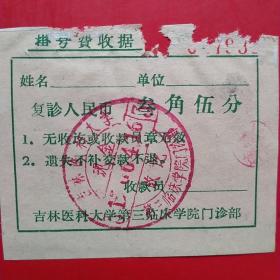 掛号費收据
姓名 单位
复診人民币 叁角伍分
1. 无收訖或收款員章无效
2. 遗失不补交款不退
收款員
吉林医科大学第三临床学院门诊部